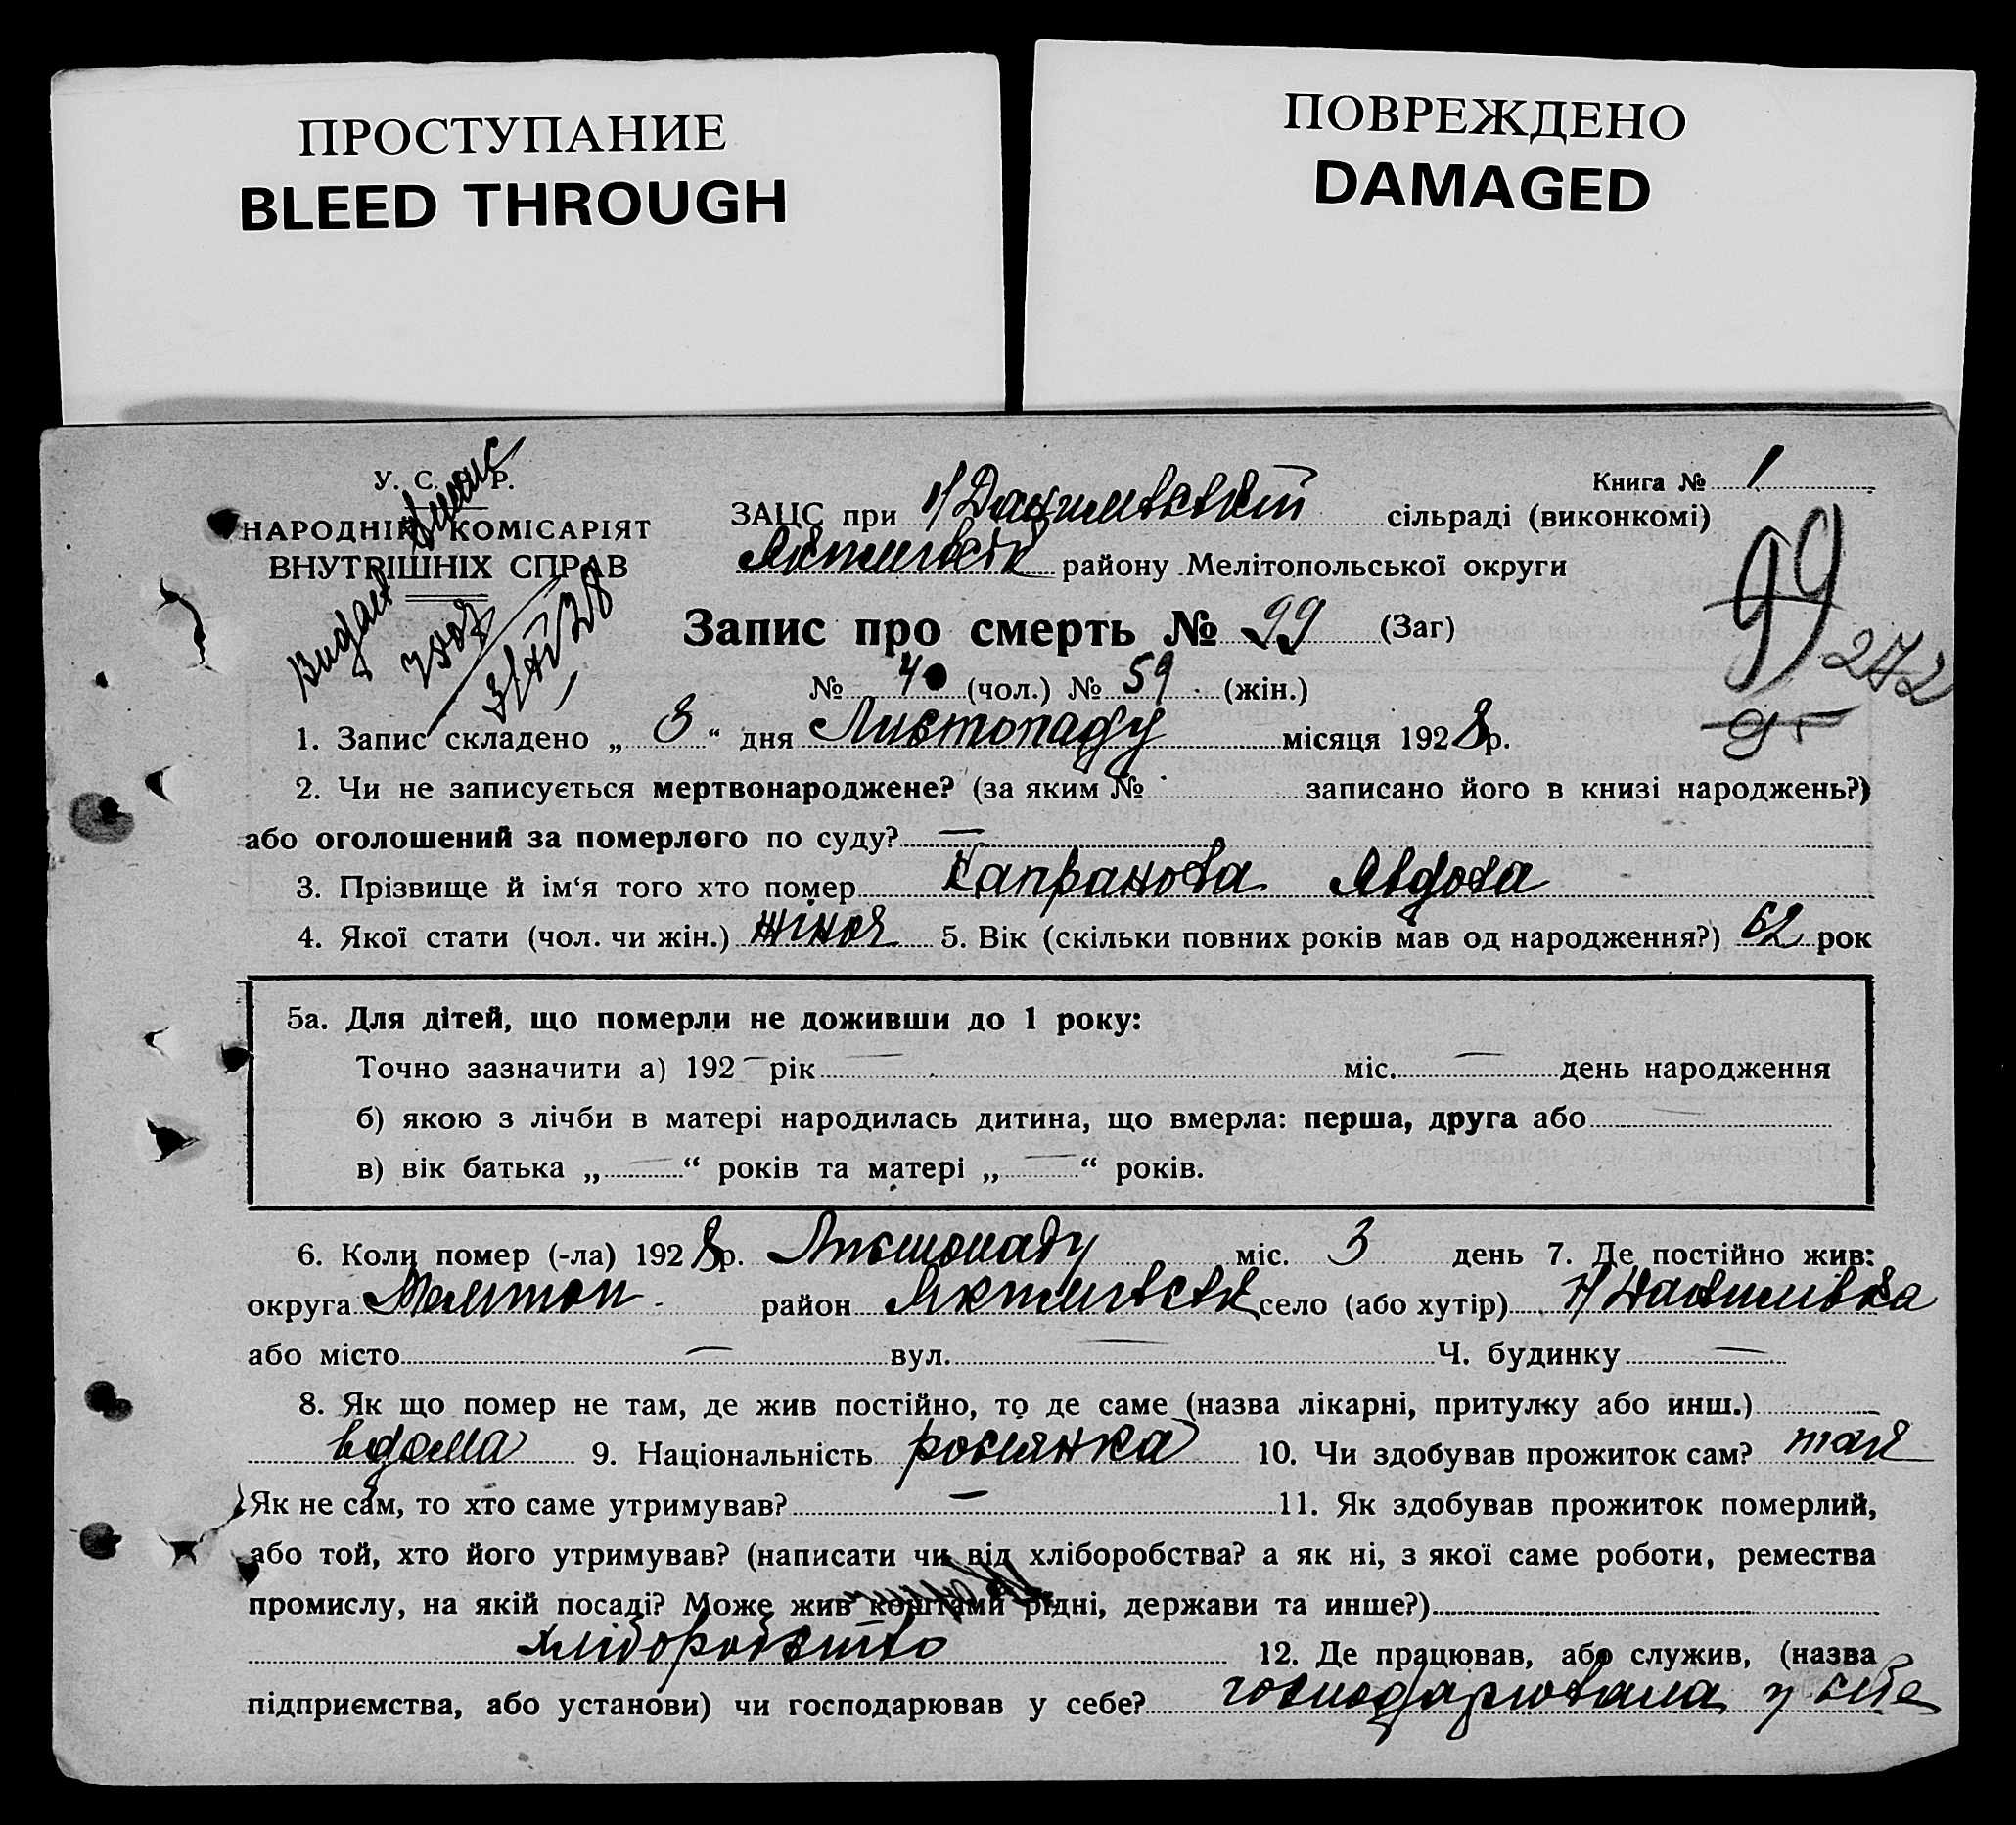 ПРОСТУПАНИЕ
BLEED THROUGH
ПОВРЕЖДЕНО
DAMAGED
У. С. Р. Р.
НАРОДНІЙ КОМІСАРІЯТ
ВНУТРІШНІХ СПРАВ
Книга № 1
ЗАЦС при Н/Данилівській сільраді (виконкомі)
району Мелітопольської округи
99
272
Запис про смерть № 99 (Заг)
№ 40 (чол.) № 59 (жін.)
1. Запис складено „ 3 “ дня Листопаду місяця 1928 р.
2. Чи не записується мертвонароджене? (за яким № записано його в книзі народжень?)
або оголошений за померлого по суду? —
3. Прізвище й ім‘я того хто помер Капранова Явдоха
4. Якої статі (чол. чи жін.) жіноч 5. Вік (скільки повних років мав од народження?) 62 рок
5а. Для дітей, що померли не доживши до 1 року:
Точно зазначити а) 192 — рік — міс. — день народження
б) якою з лічби в матері народилась дитина, що вмерла: перша, друга або —
в) вік батька „ — “ років та матері „ — “ років.
6. Коли помер (-ла) 1928 р. Листопаду міс. 3 день 7. Де постійно жив:
округа Мелітоп район село (або хутір) Н/Данилівка
або місто — вул. — Ч. будинку —
8. Як що помер не там, де жив постійно, то де саме (назва лікарні, притулку або инш.)
вдома 9. Національність росіянка 10. Чи здобував прожиток сам? так
Як не сам, то хто саме утримував? — 11. Як здобував прожиток померлий,
або той, хто його утримував? (написати чи від хліборобства? а як ні, з якої саме роботи, ремества
промислу, на якій посаді? Може жив коштами рідні, держави та инше?)
хліборобство 12. Де працював, або служив, (назва
підприємства, або установи) чи господарював у себе? господарювала у себе